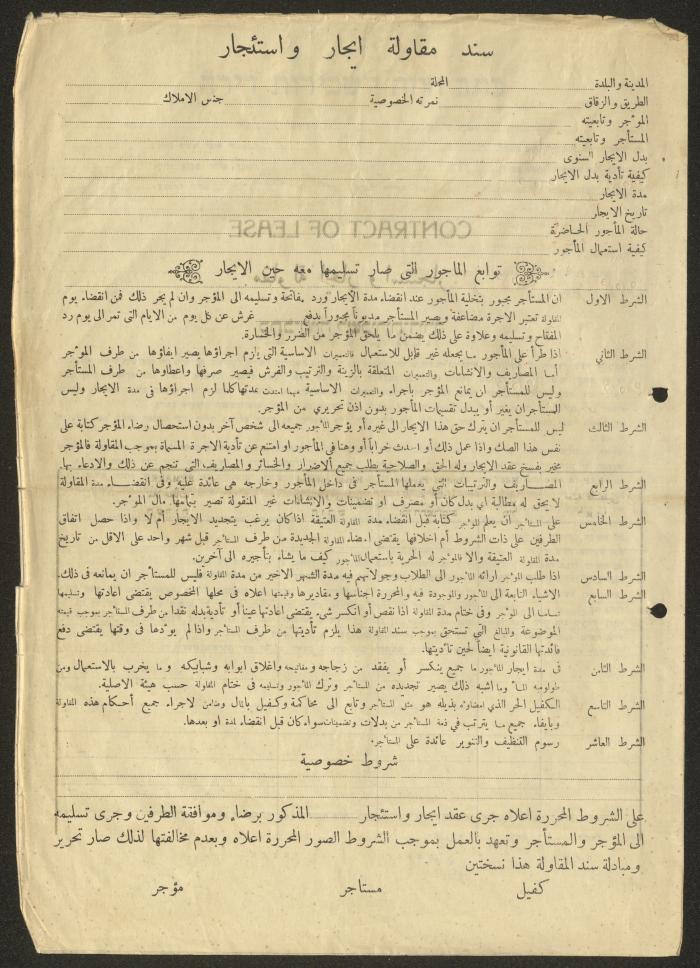 سند مقاولة ايجار واستئجار
المدينة والبلدة المحلة
الطريق والزقاق نمرته الخصوصية جنس الاملاك
المؤجر وتابعيته
المستأجر وتابعيته
بدل الايجار السنوى
كيفية تأدية بدل الايجار
مدة الايجار
تاريخ الايجار
حالة المأجور الحاضرة
كيفية استعمال المأجور
CONTRACT OF LEASE
توابع المأجور التى صار تسليمها معه حين الايجار
الشرط الاول ان المستأجر مجبور بتخلية المأجور عند انقضاء مدة الايجار ورد مفاتحة وتسليمه الى المؤجر وان لم يجر ذلك فمن انقضاء يوم
المقاولة تعتبر الاجرة مضاعفة ويصير المستأجر مديوناً مجبوراً بدفع غرش عن كل يوم من الايام التى تمر الى يوم رد
المفتاح وتسليمه وعلاوة على ذلك يضمن ما يلحق المؤجر من الضرر والخسارة.
الشرط الثاني اذا طرأ على المأجور ما يجعله غير قابل للاستعمال فالتعميرات الاساسية التى يلزم اجراؤها يصير ايفاؤها من طرف المؤجر
أما المصاريف والانشاءات والتعميرات المتعلقة بالزينة والترتيب والفرش فيصير صرفها واعطاؤها من طرف المستأجر
وليس للمستأجر ان يمانع المؤجر باجراء والتعميرات الاساسية مهما امتدت مدتها كلما لزم اجراؤها فى مدة الايجار وليس
للمستأجر ان يغير أو يبدل تقسيمات المأجور بدون اذن تحريرى من المؤجر.
الشرط الثالث ليس للمستأجر ان يترك حق هذا الايجار الى غيره أو يؤجر المأجور جميعه الى شخص آخر بدون استحصال رضاء المؤجر كتابة على
نفس هذا الصك واذا عمل ذلك أو احدث خراباً أو وهنا فى المأجور او امتنع عن تأدية الاجرة المسماة بموجب المقاولة فالمؤجر
مخير بفسخ عقد الايجار وله الحق والصلاحية بطلب جميع الاضرار والخسائر والمصاريف التى تنجم عن ذلك والادعاء بها.
الشرط الرابع المصاريف والترتيبات التى يعملها المستأجر فى داخل المأجور وخارجه هى عائدة عليه وفى انقضاء مدة المقاولة
لا يحق له مطالبة اى بدل كان أو مصرف او تضمينات والانشاءات غير المنقولة تصير بتمامها مال المؤجر.
الشرط الخامس على المستأجر ان يعلم المؤجر كتابة قبل انقضاء مدة المقاولة العتيقة اذا كان يرغب بتجديد الايجار أم لا واذا حصل اتفاق
الطرفين على ذات الشروط أم اخلافها يقتضى امضاء المقاولة الجديدة من طرف المستأجر قبل شهر واحد على الاقل من تاريخ
مدة المقاولة العتيقة والا فالمؤجر له الحرية باستعمال المأجور كيف ما يشاء بتأجيره الى آخرين.
الشرط السادس اذا طلب المؤجر ارائه المأجور الى الطلاب وجولانهم فيه مدة الشهر الاخير من مدة المقاولة فليس للمستأجر ان يمانعه فى ذلك.
الشرط السابع الاشياء التابعة الى المأجور والموجودة فيه والمحررة اجناسها ومقاديرها وقيمتها اعلاه فى محلها المخصوص يقتضى اعادتها وتسليمها
تماما الى المؤجر وفى ختام مدة المقاولة اذا نقص أو انكسر شى يقتضى اعادتها عينا أو تأدية بدله نقدا من طرف المستأجر بموجب قيمته
الموضوعة والمبالغ التى تستحق بموجب سند المقاولة هذا يلزم تأديتها من طرف المستأجر واذا لم يؤدها فى وقتها يقتضى دفع
فائدتها القانونية ايضاً لحين تأديتها.
الشرط الثامن فى مدة ايجار المأجور ما جميع ينكسر أو يفقد من زجاجه ومفاتيحه واغلاق ابوابه وشبابيكه وما يخرب بالاستعمال ومن
وما اشبه ذلك يصير تجديده من المستأجر وترك المأجور وتسليمه فى ختام المقاولة حسب هيئة الاصلية.
الشرط التاسع الكفيل الحر الذى امضاؤه بذيله هو مثل المستأجر وتابع الى محاكمة وكفيل بالمال وضامن لاجراء جميع أحكام هذه المقاولة
وبايفاء جميع ما يترتب فى ذمة المستأجر من بدلات وتضمينات سواء كان قبل انقضاء المدة او بعدها.
الشرط العاشر رسوم التنظيف والتنوير عائدة على المستأجر.
شروط خصوصية
على الشروط المحررة اعلاه جرى عقد ايجار واستئجار المذكور برضاء وموافقة الطرفين وجرى تسليمه
الى المؤجر والمستأجر وتعهد بالعمل بموجب الشروط الصور المحررة اعلاه وبعدم مخالفتها لذلك صار تحرير
ومبادلة سند المقاولة هذا نسختين
كفيل مستاجر مؤجر